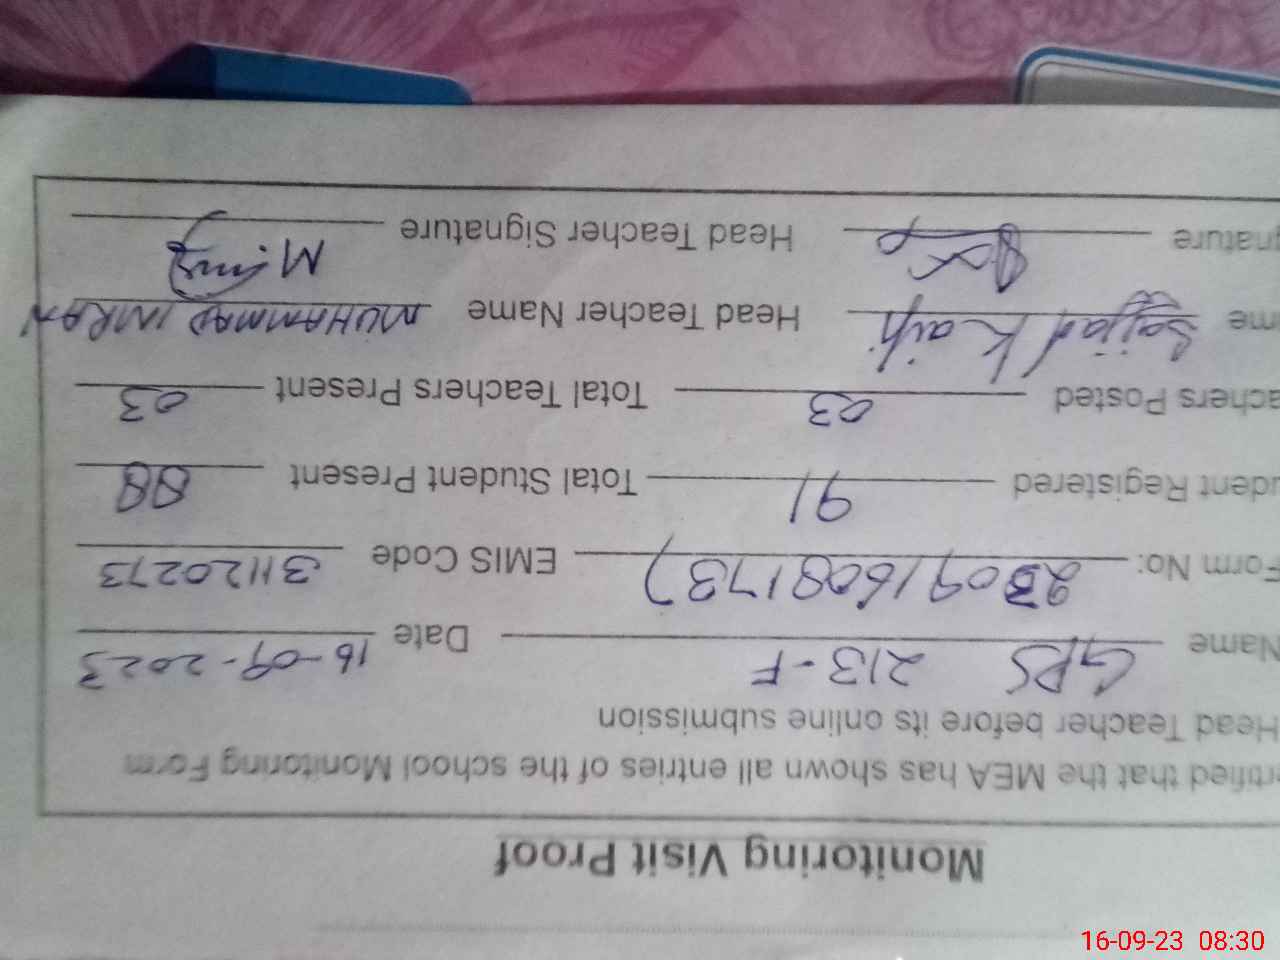 Monitoring Visit Proof
rtified that the MEA has shown all entries of the school Monitoring Form
Head Teacher before its online submission
Name GPS 213-F Date 16-09-2023
Form No: 230916081737 EMIS Code 31120273
udent Registered 91 Total Student Present 88
achers Posted 03 Total Teachers Present 03
me Sajjad Kaifi Head Teacher Name MUHAMMAD IMRAN
gnature Head Teacher Signature M.
16-09-23 08:30